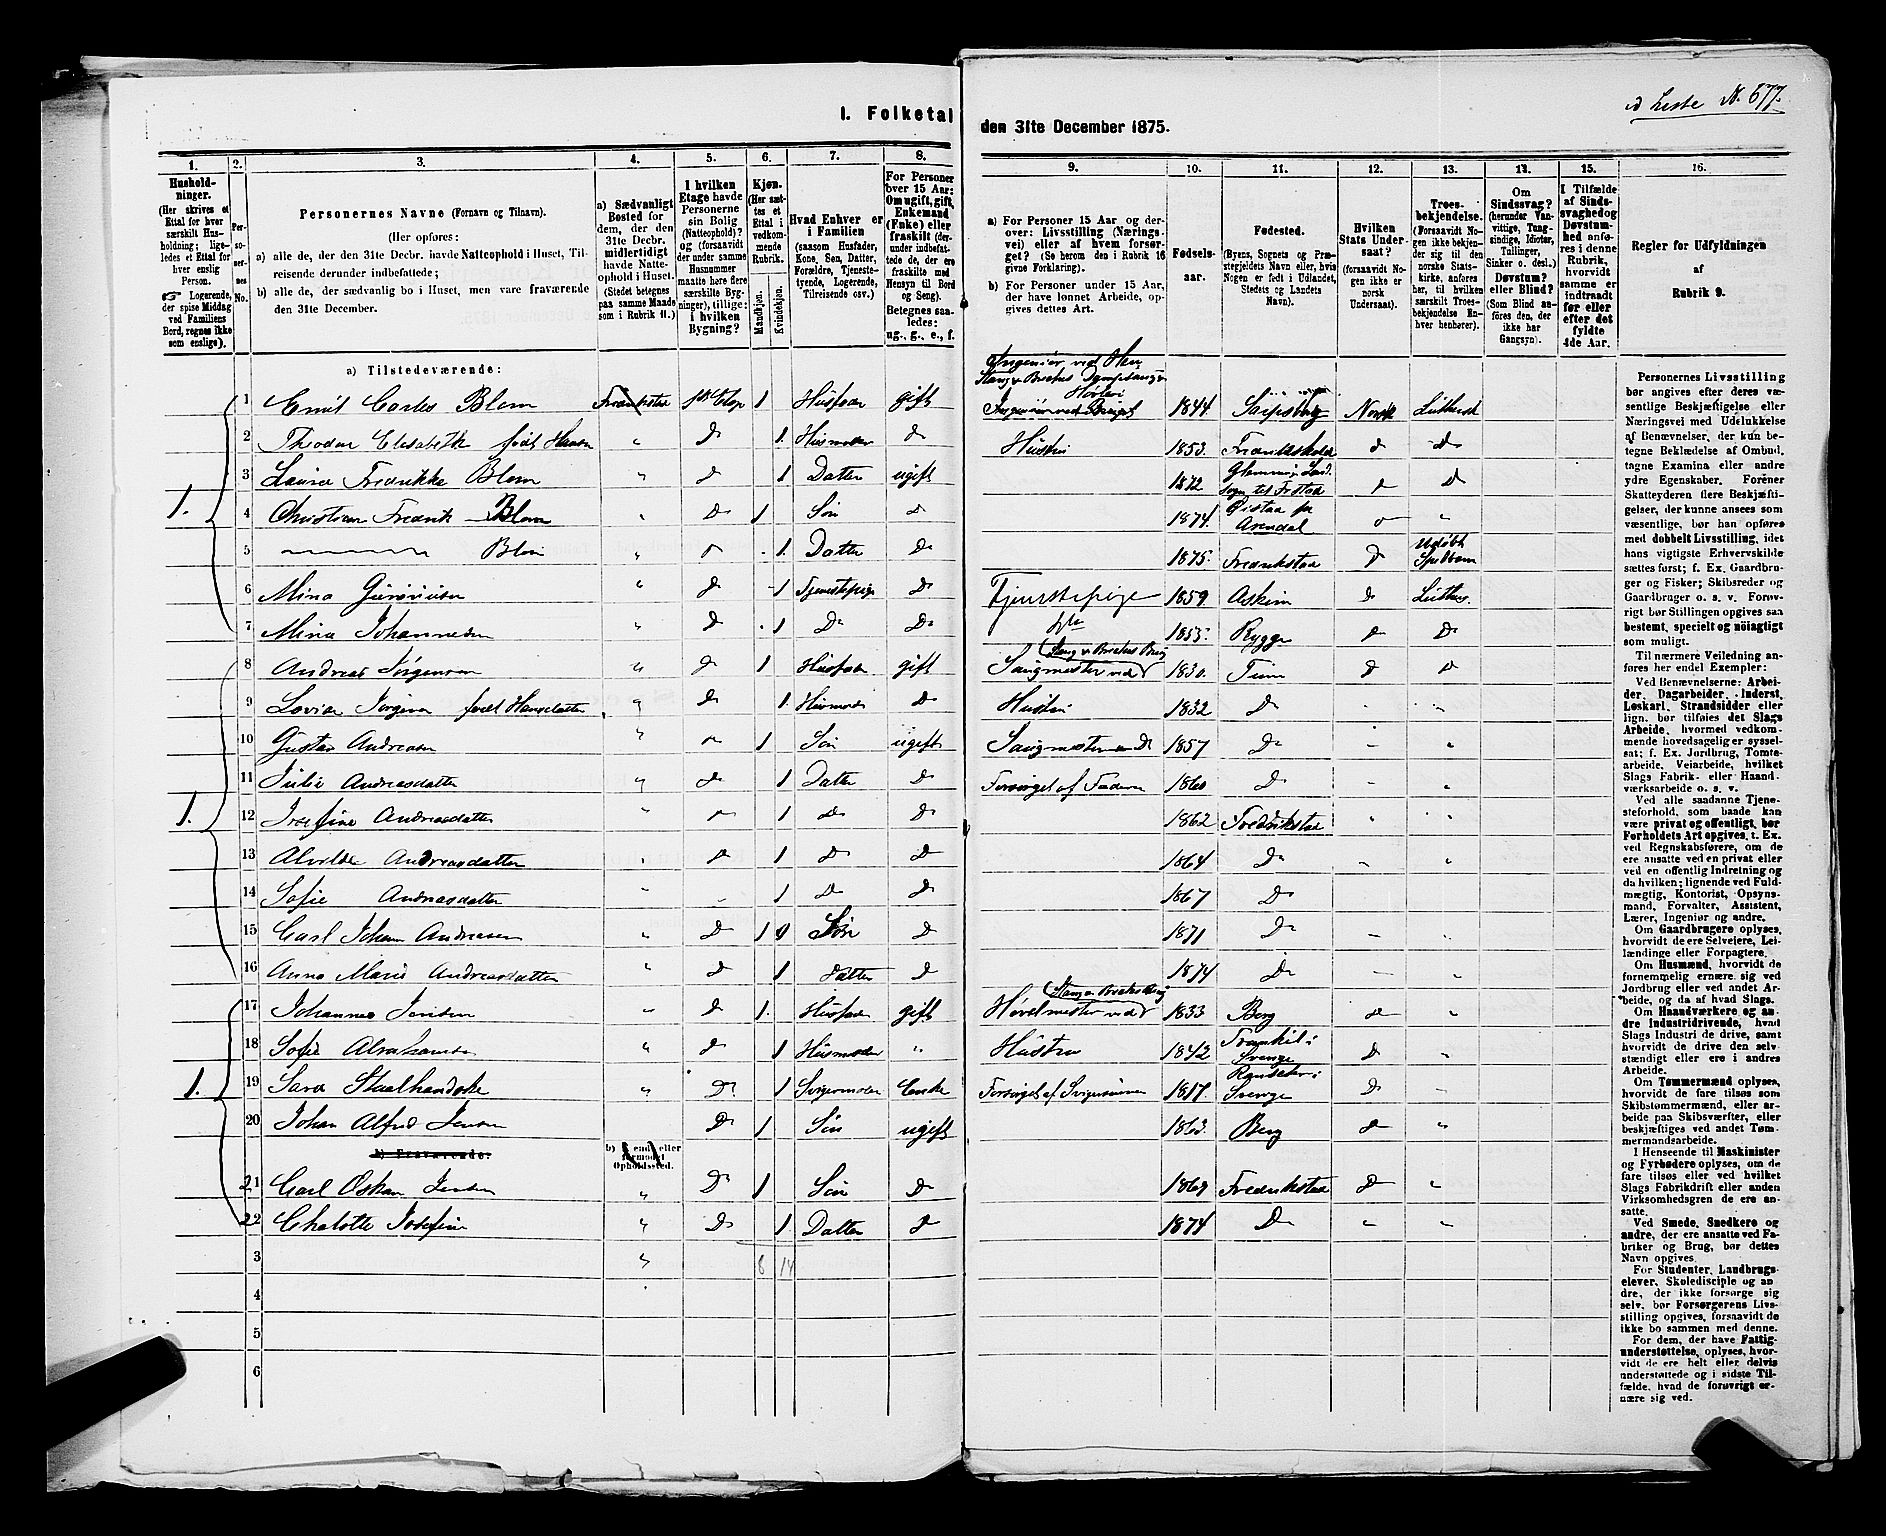 d Liste No. 677.
I. Folketal
den 31te December 1875.
1.
2.
3.
4.
5.
6.
7.
8.
9.
10.
11.
12.
13.
14.
15.
16.
Hushold-
ninger.
(Her skrives et
Ettal for hver
særskilt Hus-
holdning; lige-
ledes et Ettal for
hver enslig
Person.
☞ Logerende,
der spise Middag
ved Familiens
Bord, regnes ikke
som enslige).
Per-
so-
ner-
nes
No.
Personernes Navne (Fornavn og Tilnavn).
(Her opføres:
a) alle de, der den 31te Decbr. havde Natteophold i Huset, Til-
reisende derunder indbefattede;
b) alle de, der sædvanlig bo i Huset, men vare fraværende
den 31te December.
a) Sædvanligt
Bosted for
dem, der den
31te Decbr.
midlertidigt
havde Natte-
ophold i Huset.
(Stedet betegnes
paa samme Maade
som i Rubrik 11.)
I hvilken
Etage havde
Personerne
sin Bolig
(Natteophold)?
og (forsaavidt
der under samme
Husnummer
maatte høre flere
særskilte Byg-
ninger), tillige:
i hvilken
Bygning?
Kjøn.
(Her sæt-
tes et
Ettal i
vedkom-
mende
Rubrik.
Mandkjøn.
Kvindekjøn.
Hvad Enhver er
i Familien
(saasom Husfader,
Kone, Søn, Datter,
Forældre, Tjeneste-
tyende, Logerende,
Tilreisende osv.)
For Personer
over 15 Aar:
Om ugift, gift,
Enkemand
(Enke) eller
fraskilt (der-
under indbefat-
tedes de, der
ere fraskilte med
Hensyn til Bord
og Seng).
Betegnes saa-
ledes:
ug., g., e., f.
a) For Personer 15 Aar og der-
over: Livsstilling (Nærings-
vei) eller af hvem forsør-
get? (Se herom den i Rubrik 16
givne Forklaring).
b) For Personer under 15 Aar,
der have lønnet Arbeide, op-
gives dettes Art.
Fødsels-
aar.
Fødested.
(Byens, Sognets og Præ-
stegjeldets Navn eller, hvis
Nogen er født i Udlandet,
Stedets og Landets
Navn).
Hvilken
Stats Under-
saat?
(forsaavidt No-
gen ikke er
norsk
Undersaat).
Troes-
bekjendelse.
(Forsaavidt No-
gen ikke bekjen-
der sig til den
norske Stats-
kirke, anføres
her, til hvilken
særskilt Troes-
bekjendelse En-
hver henhører).
Om
Sindssvag?
(herunder Van-
vittige, Tung-
sindige, Idioter,
Tullinger,
Sinker o. desl.)
Døvstum?
eller Blind?
(Som Blind an-
føres den, der
ikke har
Gangsyn).
I Tilfælde
af Sinds-
svaghed og
Døvstum-
hed anfø-
res i denne
Rubrik,
hvorvidt
samme er
indtraadt
før eller
efter det
fyldte
4de Aar.
Regler for Udfyldningen
af
Rubrik 9.
a) Tilstedeværende:
1 Emil Carles Blom Fredrikstad 1ste Etage 1 Husfader gift 1844 Sarpsborg Norsk Luthersk
2 Theodor Elisabeth født Hansen " Do 1. Husmoder Do Hustru 1853. Fredrikshald Do Do
3 Laura Fredrikke Blom " Do 1 Datter ugift 1872 Glemminge Land- sogn til Frstad Do Do
1.
4 Christian Fredrik Blom " Do 1 Søn Do 1874. Arendal Do "
5 Blom " Do 1. Datter Do 1875. Fredrikstad Do Udøbt Spedbarn
6 Mina " Do 1 Tjenestepige Do Tjenestepige 1859 Askim Do Luthersk
7 Mina Johannesen " Do 1 Do Do 1855. Rygge Do Do
8 Andreas Jørgensen " Do 1 Husfader gift Saugmester ved 1830. Tune Do Do
9 Lovise Jørgine født Hansdatter " Do 1. Husmoder Do Hustru 1832 Do
10 Gustav Andreasen " Do 1 Søn ugift Saugmester 1857 Do
11 Julie Andreasdatter " Do 1 Datter Do Forsørget af Faderen 1860 Do
1.
12 Josefine Andreasdatter " Do 1 Do Do 1862 Fredrikstad
13 Alvilde Andreasdatter " Do 1 Do Do 1864 Do
14 Sofie Andreasdatter " 1 Do Do 1867 Do
15 Carl Johan Andreasen " Do 1 Søn Do 1871 Do
16 Anna Marie Andreasdatter " Do 1 Datter Do 1874 Do
17 Johannes Jensen " Do 1. Husfader gift Høvelmester ved 1833 Berg Do "
18 Sofie " Do 1 Husmoder " Hustru 1842 Sverige Do "
1.
19 Sara Staalhandske " Do 1 Svigermoder Enke Forsørget af Svigersønnen 1817. Sverige Do
20 Johan Alfred Jensen Do 1 Søn ugift 1863. Berg Do "
b) Fraværende:
b) Kendt eller
formodet
Opholdssted.
21 Carl Oskar Jensen " Do 1 Søn Do 1869 Fredrikstad Do "
22 Chalotte Josefine " Do 1. Datter Do 1874 Do " "
3 " 8 14
4
5
6
Personernes Livsstilling
bør angives efter deres væ-
sentlige Beskjæftigelse eller
Næringsvei med Udelukkelse
af Benævnelser, der kun be-
tegne Beklædelse af Ombud,
tagne Examina eller andre
ydre Egenskaber. Forener
Skatteyderen flere Beskjæfti-
gelser, der kunne ansees som
væsentlige, bør han opføres
med dobbelt Livsstilling, idet
hans vigtigste Erhvervskilde
sættes først; f. Ex. Gaardbru-
ger og Fisker; Skibsreder og
Gaardbruger o. s. v. Forøv-
rigt bør Stillingen opgives saa
bestemt, specielt og nøiagtigt
som muligt.
Til nærmere Veiledning an-
føres her endel Exempler:
Ved Benævnelserne: Arbei-
der, Dagarbeider, Inderst,
Løskarl, Strandsidder eller
lign. bør tilføies det Slags
Arbeide, hvormed vedkom-
mende hovedsagelig er syssel-
sat; f. Ex. Jordbrug, Tomte-
arbeide, Veiarbeide, hvilket
Slags Fabrik- eller Haand-
værksarbeide o. s. v.
Ved alle saadanne Tjene-
steforhold, som baade kan
være privat og offentligt, bør
Forholdets Art opgives, t. Ex.
ved Regnskabsførere, om de
ere ansatte ved en privat eller
ved en offentlig Indretning og
da hvilken; lignende ved Fuld-
mægtig, Kontorist, Opsyns-
mand, Forvalter, Assistent,
Lærer, Ingeniør og andre.
Om Gaardbrugere oplyses,
hvorvidt de ere Selveiere, Lei-
lændinge eller Forpagtere.
Om Husmænd, hvorvidt de
fornemmelig ernære sig ved
Jordbrug eller ved andet Ar-
beide, og da af hvad Slags.
Om Haandværkere og an-
dre Industridrivende, hvad
Slags Industri de drive, samt
hvorvidt de drive den selv-
stændigt eller ere i andres
Arbeide.
Om Tømmermænd oplyses,
hvorvidt de fare tilsøs som
Skibstømmermænd, eller ar-
beide paa Skibsværfter, eller
beskjæftiges ved andet Tøm-
mermandsarbeide.
I Henseende til Maskinister
og Fyrbødere oplyses, om de
fare tilsøs eller ved hvilket
Slags Fabrikdrift eller anden
Virksomhedsgren de ere an-
satte.
Ved Smede, Snedkere og
andre, der ere ansatte ved Fa-
briker og Brug, bør dettes
Navn opgives.
For Studenter, Landbrugs-
elever, Skoledisciple og an-
dre, der ikke forsørge sig
selv, bør Forsørgerens Livs-
stilling opgives, forsaavidt de
ikke bo sammen med denne.
For dem, der have Fattig-
understøttelse, oplyses, hvor-
vidt de ere helt eller delvis
understøttede og i sidste Til-
fælde, hvad de forøvrigt er-
nære sig ved.